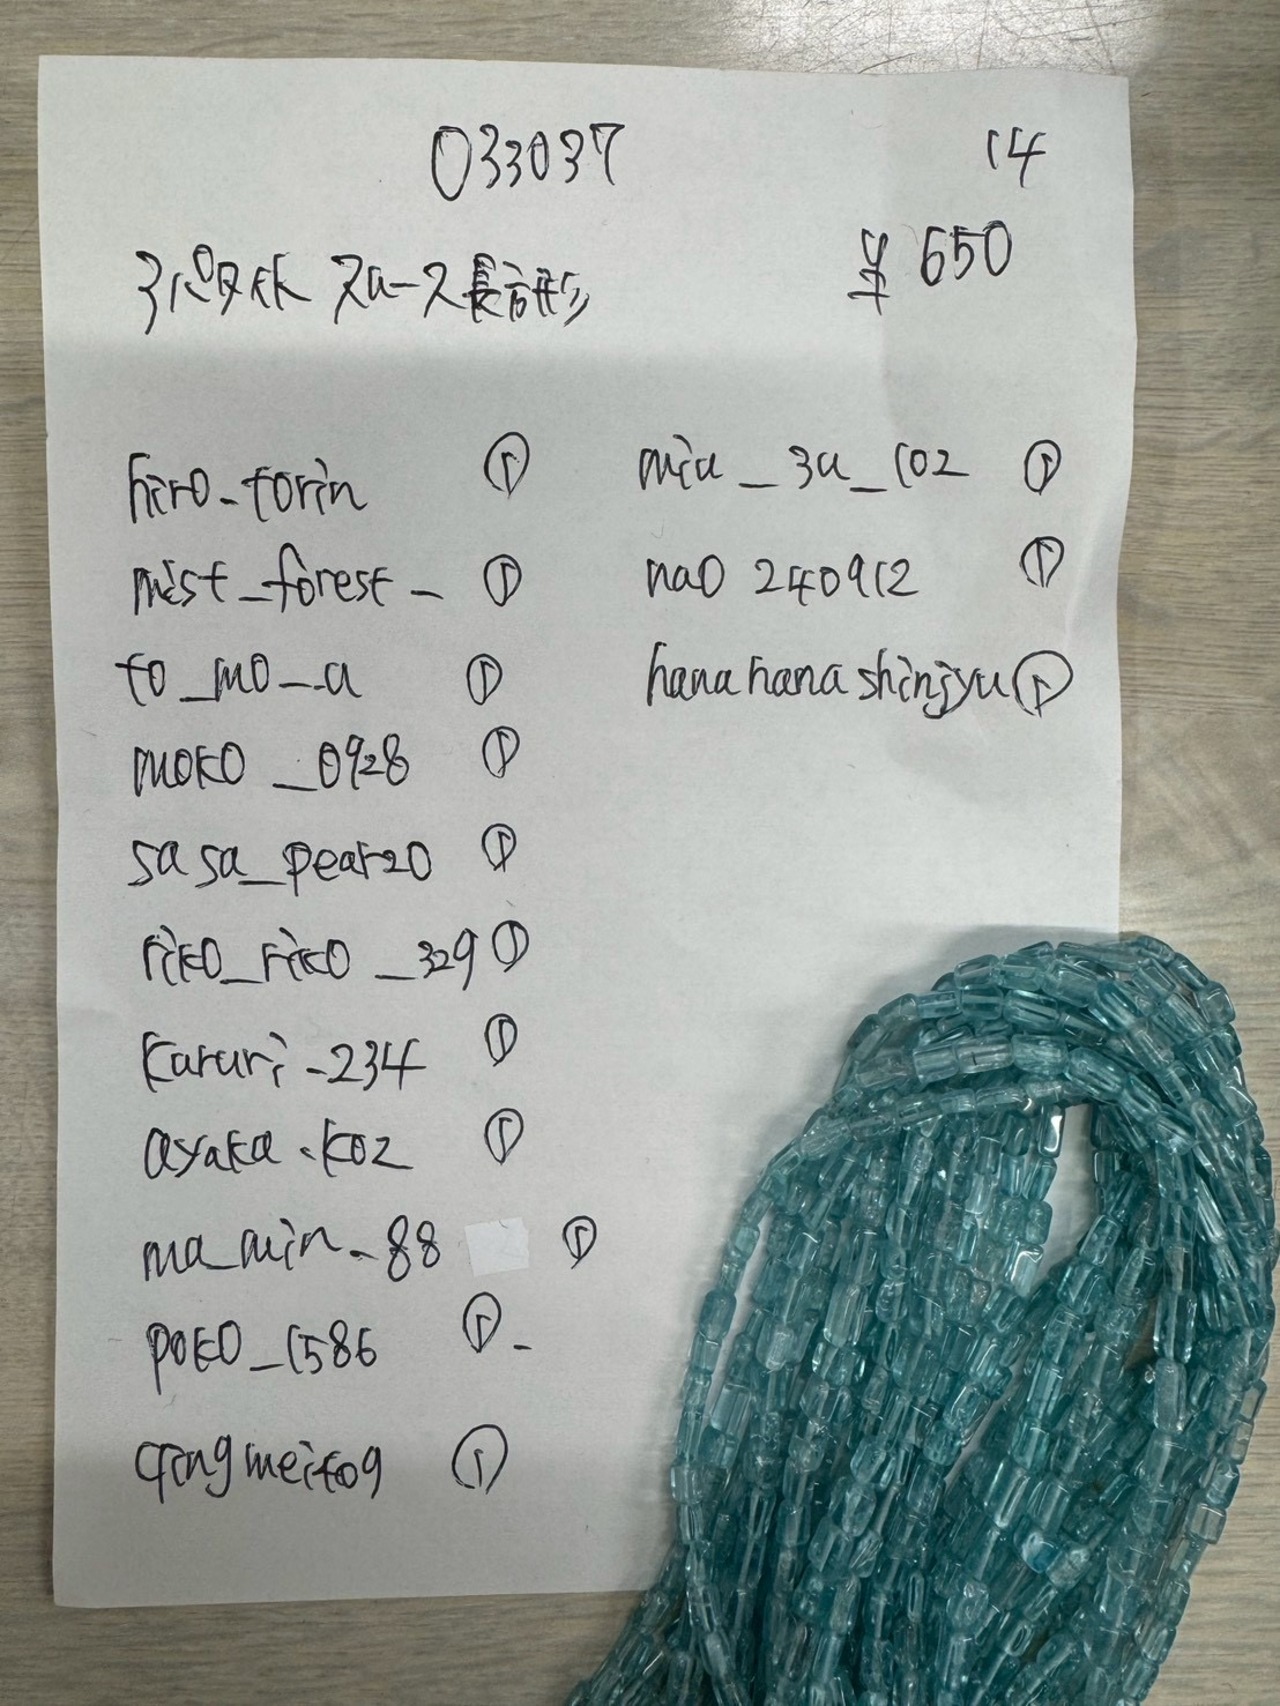 033037
14
アパタイト スムース長方形
¥650
hiro_torin ①
mist_forest_ ①
to_mo_a ①
moko_0928 ①
sasa_pear20 ①
riko_riko_329 ①
karuri_234 ①
ayaka.k02 ①
ma_min_88 ①
poko_1586 ①-
qingmeito9 ①
miu_3a_102 ①
nao 240912 ①
hanahanashinjyu ①